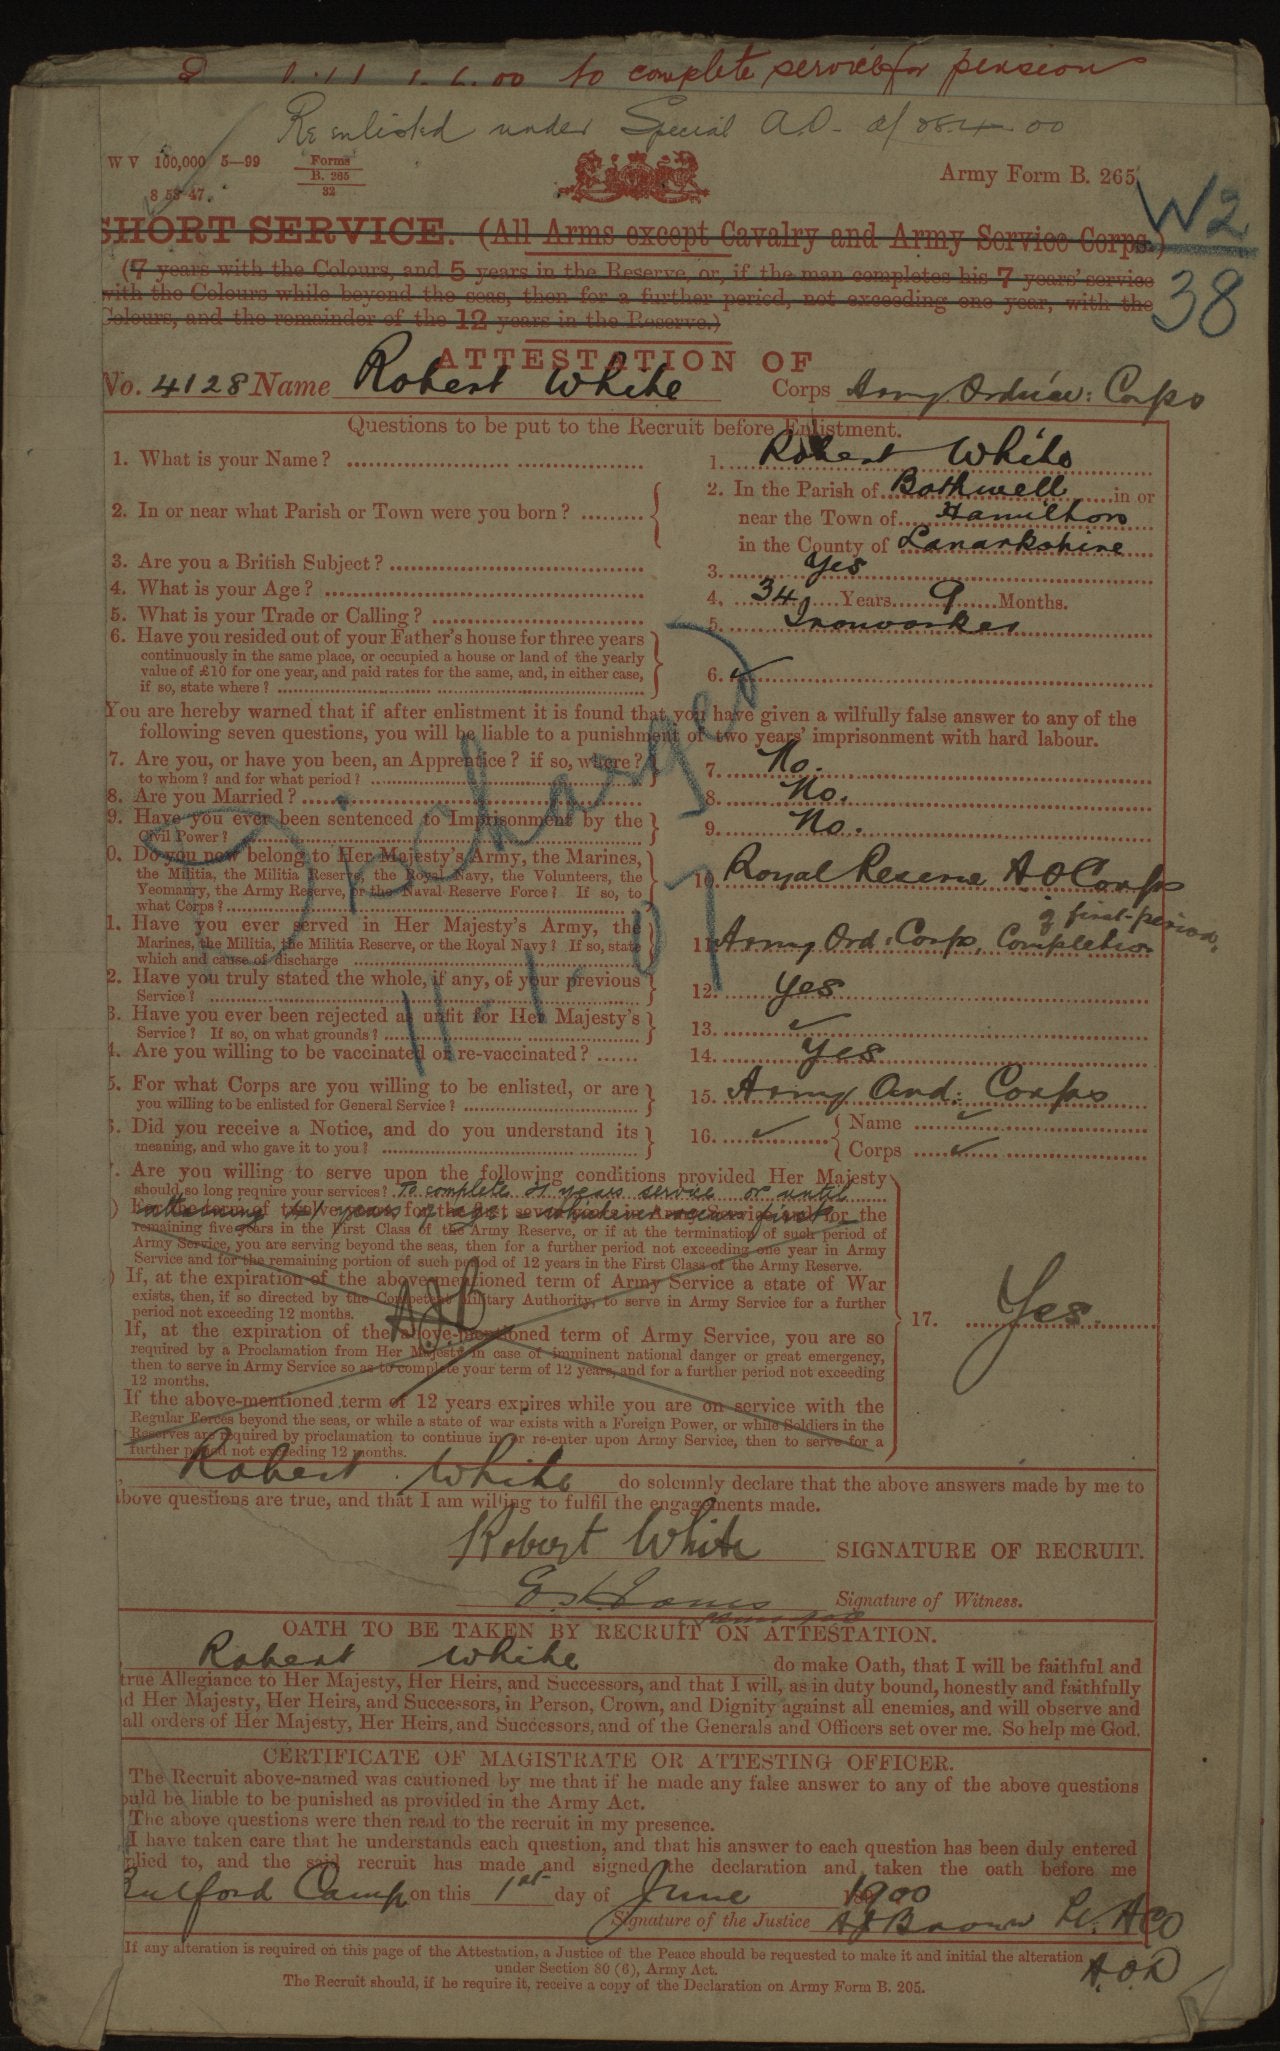 to complete service for pension
Re enlisted under Special A.O. of
W V 100,000 5—99 Forms B. 265 32
Army Form B. 265.
W2
38
SHORT SERVICE. (All Arms except Cavalry and Army Service Corps.)
(7 years with the Colours, and 5 years in the Reserve, or, if the man completes his 7 years' service
with the Colours while beyond the seas, then for a further period, not exceeding one year, with the
Colours, and the remainder of the 12 years in the Reserve.)
ATTESTATION OF
No. 4128 Name Robert White Corps Army Ordnce: Corps
Questions to be put to the Recruit before Enlistment.
1. What is your Name? 1. Robert White
2. In or near what Parish or Town were you born? 2. In the Parish of Bothwell in or
near the Town of Hamilton
in the County of Lanarkshire
3. Are you a British Subject? 3. Yes
4. What is your Age? 4. 34 Years 9 Months.
5. What is your Trade or Calling? 5. Ironworker
6. Have you resided out of your Father's house for three years
continuously in the same place, or occupied a house or land of the yearly
value of £10 for one year, and paid rates for the same, and, in either case,
if so, state where? 6. ✓
You are hereby warned that if after enlistment it is found that you have given a wilfully false answer to any of the
following seven questions, you will be liable to a punishment of two years' imprisonment with hard labour.
Discharged
11.1.07
7. Are you, or have you been, an Apprentice? if so, where?
to whom? and for what period? 7. No.
8. Are you Married? 8. No.
9. Have you ever been sentenced to Imprisonment by the
Civil Power? 9. No.
0. Do you now belong to Her Majesty's Army, the Marines,
the Militia, the Militia Reserve, the Royal Navy, the Volunteers, the
Yeomanry, the Army Reserve, or the Naval Reserve Force? If so, to
what Corps? 10. Royal Reserve A.O Corps
1. Have you ever served in Her Majesty's Army, the
Marines, the Militia, the Militia Reserve, or the Royal Navy? If so, state
which and cause of discharge 11. Army Ord: Corps, Completion
of first period.
2. Have you truly stated the whole, if any, of your previous
Service? 12. Yes
3. Have you ever been rejected as unfit for Her Majesty's
Service? If so, on what grounds? 13. ✓
4. Are you willing to be vaccinated or re-vaccinated? 14. Yes
5. For what Corps are you willing to be enlisted, or are
you willing to be enlisted for General Service? 15. Army Ord: Corps
6. Did you receive a Notice, and do you understand its
meaning, and who gave it to you? 16. ✓ Name ✓
Corps ✓
7. Are you willing to serve upon the following conditions provided Her Majesty
should so long require your services? To complete 21 years service or until
attaining years of age whichever occurs first
remaining five years in the First Class of the Army Reserve, or if at the termination of such period of
Army Service, you are serving beyond the seas, then for a further period not exceeding one year in Army
Service and for the remaining portion of such period of 12 years in the First Class of the Army Reserve.
) If, at the expiration of the above-mentioned term of Army Service a state of War
exists, then, if so directed by the Competent Military Authority, to serve in Army Service for a further
period not exceeding 12 months.
AJB
If, at the expiration of the above-mentioned term of Army Service, you are so
required by a Proclamation from Her Majesty in case of imminent national danger or great emergency,
then to serve in Army Service so as to complete your term of 12 years, and for a further period not exceeding
12 months.
If the above-mentioned term of 12 years expires while you are on service with the
Regular Forces beyond the seas, or while a state of war exists with a Foreign Power, or while Soldiers in the
Reserves are required by proclamation to continue in or re-enter upon Army Service, then to serve for a
further period not exceeding 12 months.
17. Yes.
Robert White do solemnly declare that the above answers made by me to
above questions are true, and that I am willing to fulfil the engagements made.
Robert White SIGNATURE OF RECRUIT.
Signature of Witness.
OATH TO BE TAKEN BY RECRUIT ON ATTESTATION.
Robert White do make Oath, that I will be faithful and
true Allegiance to Her Majesty, Her Heirs, and Successors, and that I will, as in duty bound, honestly and faithfully
d Her Majesty, Her Heirs, and Successors, in Person, Crown, and Dignity against all enemies, and will observe and
all orders of Her Majesty, Her Heirs, and Successors, and of the Generals and Officers set over me. So help me God.
CERTIFICATE OF MAGISTRATE OR ATTESTING OFFICER.
The Recruit above-named was cautioned by me that if he made any false answer to any of the above questions
ould be liable to be punished as provided in the Army Act.
The above questions were then read to the recruit in my presence.
I have taken care that he understands each question, and that his answer to each question has been duly entered
plied to, and the said recruit has made and signed the declaration and taken the oath before me
Bulford Camp on this 1st day of June 1900
Signature of the Justice AJ Brown Lt. ACO
A.O.D
If any alteration is required on this page of the Attestation, a Justice of the Peace should be requested to make it and initial the alteration
under Section 80 (6), Army Act.
The Recruit should, if he require it, receive a copy of the Declaration on Army Form B. 205.